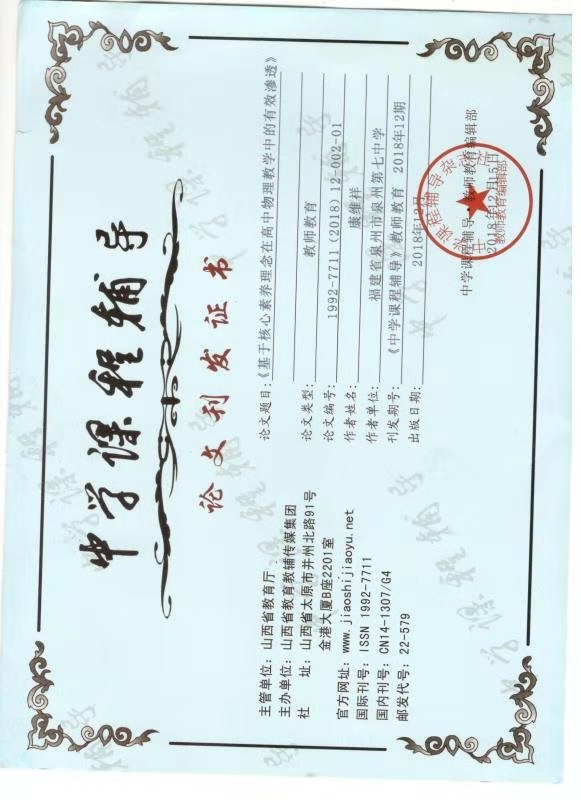 中学课程辅导
论文刊发证书
论文题目:《基于核心素养理念在高中物理教学中的有效渗透》
论文类型: 教师教育
论文编号: 1992-7711(2018)12-002-01
作者姓名: 康维祥
作者单位: 福建省泉州市泉州第七中学
刊发期号: 《中学课程辅导》教师教育 2018年12期
出版日期: 2018年12月
主管单位: 山西省教育厅
主办单位: 山西省教育教辅传媒集团
社 址: 山西省太原市并州北路91号
金港大厦B座2201室
官方网址: www.jiaoshijiaoyu.net
国际刊号: ISSN 1992-7711
国内刊号: CN14-1307/G4
邮发代号: 22-579
中学课程辅导·教师教育编辑部
2018年12月15日
中学课程辅导杂志社
教师教育编辑部